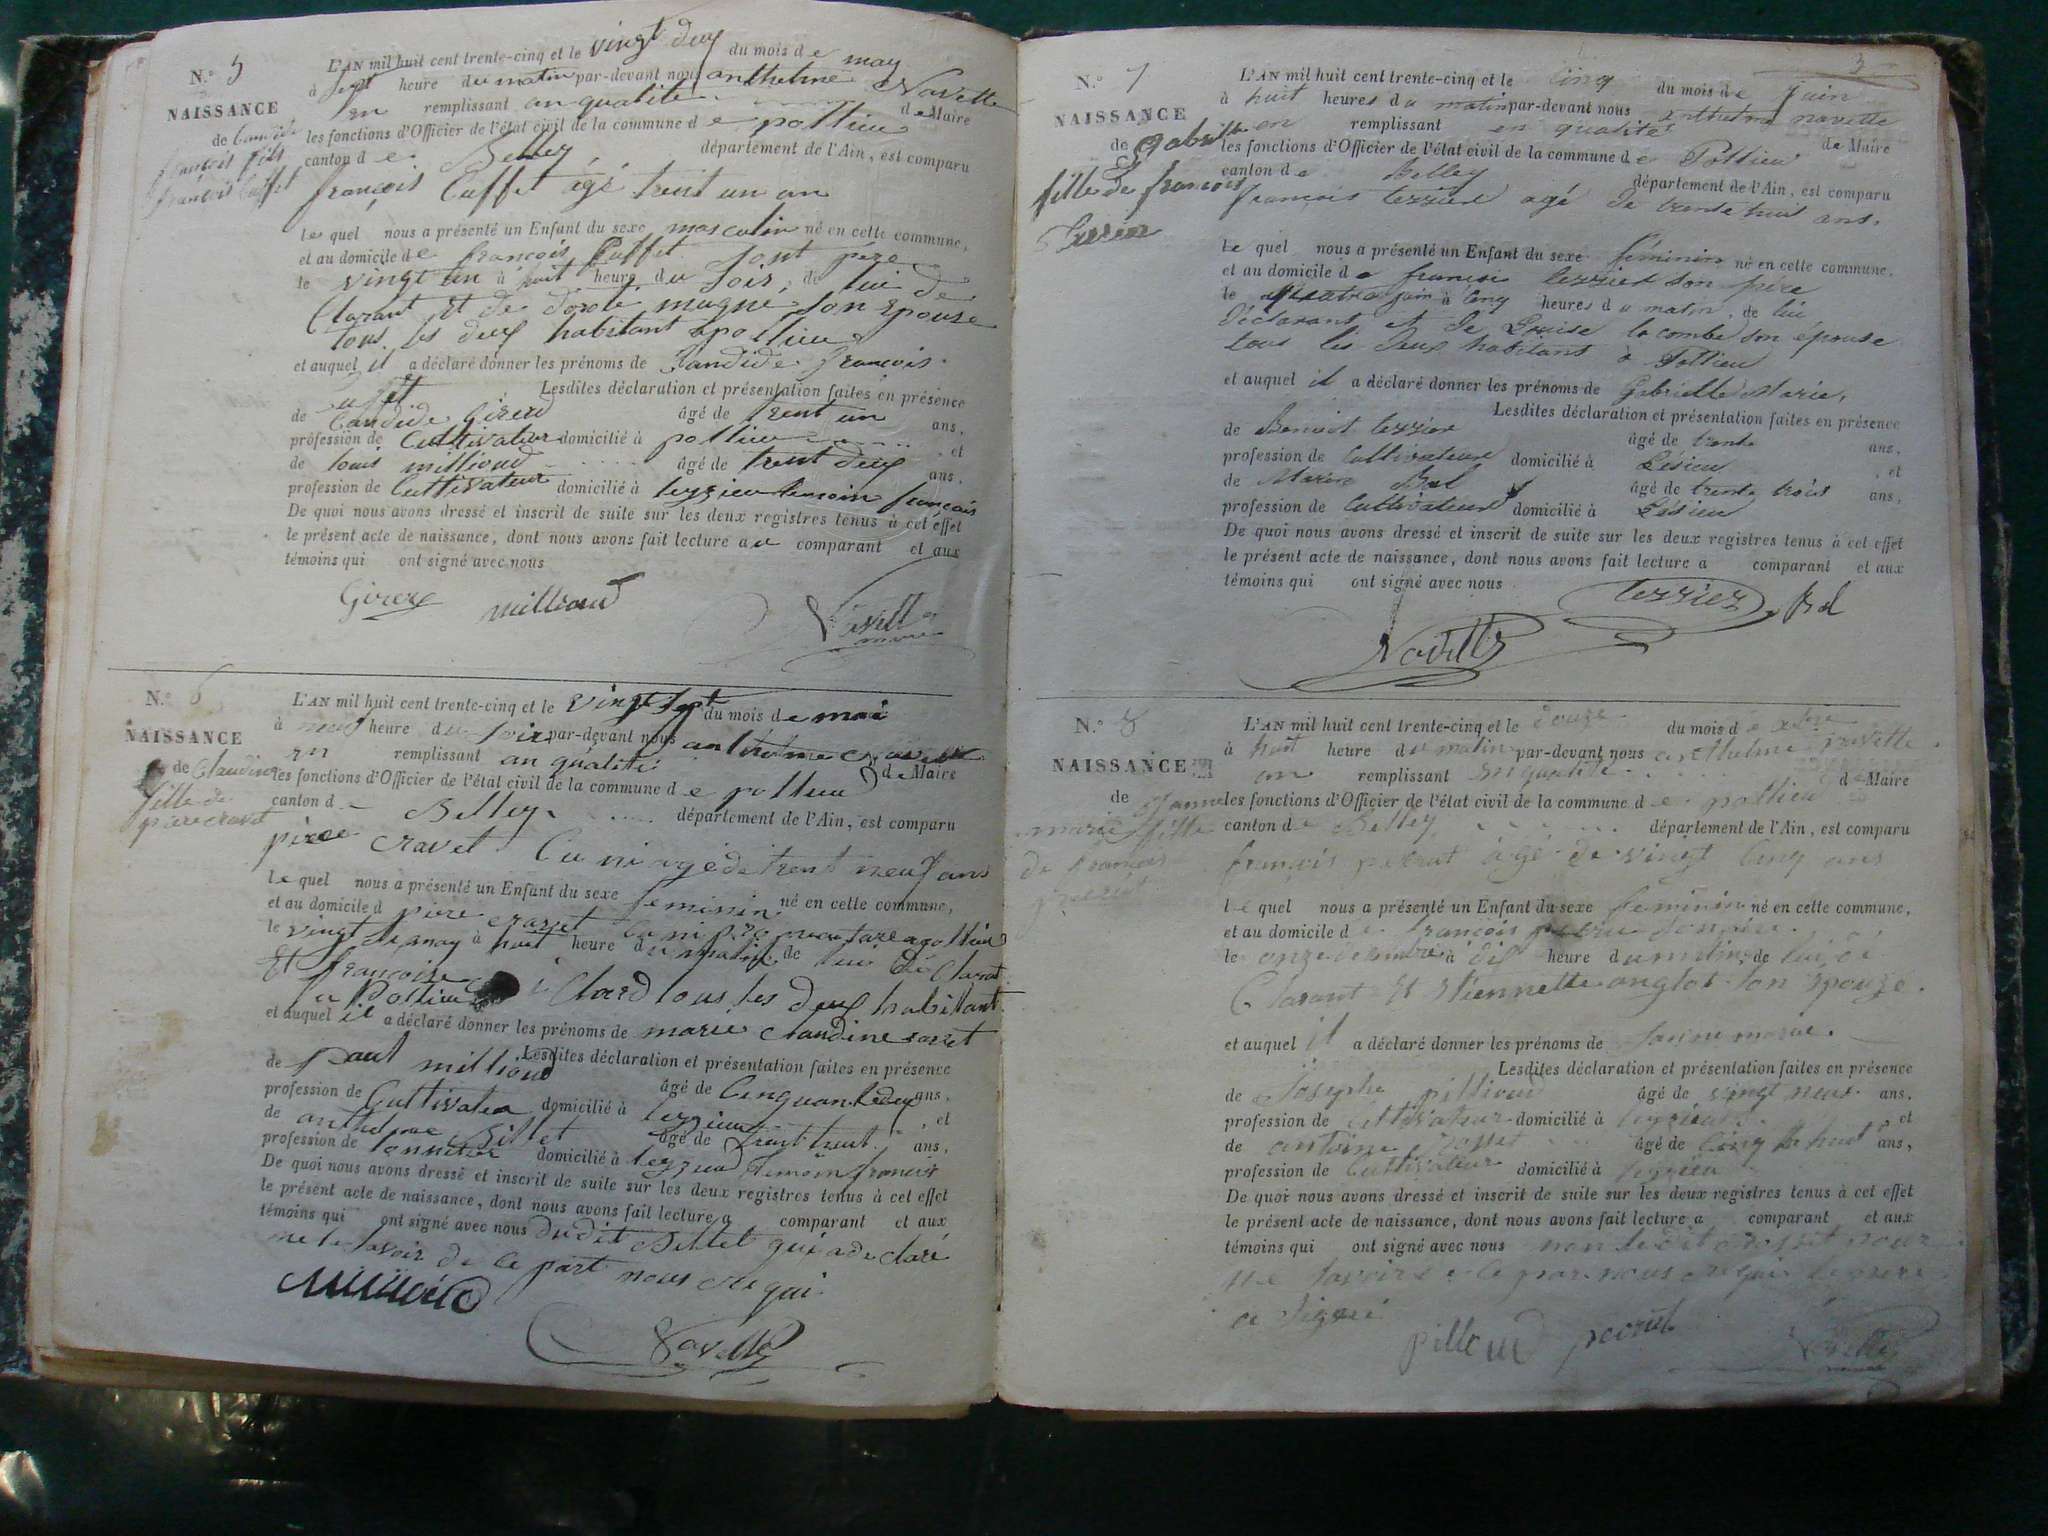 N.o 5
NAISSANCE
de Candide
françois fils
françois Cuffet
L'AN mil huit cent trente-cinq et le vingt deux du mois de may
à sept heure du matin par-devant nous anthelme Navette
en remplissant en qualité de Maire
les fonctions d'Officier de l'état civil de la commune de pollieu
canton de Belley département de l'Ain, est comparu
françois Cuffet âgé trent un an
le quel nous a présenté un Enfant du sexe masculin né en cette commune,
et au domicile de françois Cuffet dont père
le vingt un à huit heure du soir, de lui dé
Clarant et de dorote mugne son epouse
tous les deux habitant a pollieu
et auquel il a déclaré donner les prénoms de Candide françois
Lesdites déclaration et présentation faites en présence
de Candide Girerd âgé de trent un ans,
profession de Cultivateur domicilié à pollieu et
de louis millioud âgé de trent deux ans,
profession de Cultivateur domicilié à leyzieu temoin francais
De quoi nous avons dressé et inscrit de suite sur les deux registres tenus à cet effet
le présent acte de naissance, dont nous avons fait lecture au comparant et aux
témoins qui ont signé avec nous
millioud
Navette
maire
N.o 6
NAISSANCE
de Claudine
fille de
piere cravet
L'AN mil huit cent trente-cinq et le vingt sept du mois de mai
à neuf heure du soir par-devant nous anthelme Navette
en remplissant en qualité de Maire
les fonctions d'Officier de l'état civil de la commune de pollieu
canton d Belley département de l'Ain, est comparu
piere cravet âgé de trent neuf ans
le quel nous a présenté un Enfant du sexe feminin né en cette commune,
et au domicile d piere cravet a pollieu
le vingt may à huit heure du matin de lui dé Clarant
Et françoise Clard tous les deux habitant
a Pollieu
et auquel il a déclaré donner les prénoms de marie Claudine cravet
Lesdites déclaration et présentation faites en présence
de paul millioud âgé de Cinquante deux ans,
profession de Cultivateur domicilié à leyzieu et
de anthelme Billet âgé de trent huit ans,
profession de domicilié à leyzieu temoin francais
De quoi nous avons dressé et inscrit de suite sur les deux registres tenus à cet effet
le présent acte de naissance, dont nous avons fait lecture a comparant et aux
témoins qui ont signé avec nous dudit Billet qui a declaré
ne le savoir de ce part nous requi
Millioud
Navette
3
N.o 7
NAISSANCE
de Gabrielle
fille de françois
Terrier
L'AN mil huit cent trente-cinq et le cinq du mois de juin
à huit heures du matin par-devant nous anthelme navette
en remplissant en qualité de Maire
les fonctions d'Officier de l'état civil de la commune de Pollieu
canton de Belley département de l'Ain, est comparu
françois terrier agé de trente huit ans.
le quel nous a présenté un Enfant du sexe féminin né en cette commune.
et au domicile de françois terrier son père
le quatre juin à cinq heures du matin, de lui
déclarant et de Louise la combe son épouse
tous les deux habitans a Pollieu
et auquel il a déclaré donner les prénoms de Gabrielle Marie,
Lesdites déclaration et présentation faites en présence
de Benoit terrier âgé de trente ans,
profession de Cultivateur domicilié à Lésieu et
de Marin Bal âgé de trente trois ans,
profession de Cultivateur domicilié à Lésieu
De quoi nous avons dressé et inscrit de suite sur les deux registres tenus à cet effet
le présent acte de naissance, dont nous avons fait lecture a comparant et aux
témoins qui ont signé avec nous
terrier Bal
Navette
N.o 8
NAISSANCE
de Janne
marie fille
de francois
L'AN mil huit cent trente-cinq et le douze du mois de xbre
à huit heure du matin par-devant nous anthelme navette
en remplissant en qualité de Maire
les fonctions d'Officier de l'état civil de la commune de pollieu
canton de Belley département de l'Ain, est comparu
françois âgé de vingt cinq ans
le quel nous a présenté un Enfant du sexe feminin né en cette commune,
et au domicile de francois
le onze décembre à dix heure du matin, de lui dé
Clarant Et Etiennette anglot son epouze.
et auquel il a déclaré donner les prénoms de Janne marie.
Lesdites déclaration et présentation faites en présence
de Josephe pilloud âgé de vingt neuf ans.
profession de cultivateur domicilié à leyzieu et
de antoine âgé de huit ans,
profession de Cultivateur domicilié à leyzieu
De quoi nous avons dressé et inscrit de suite sur les deux registres tenus à cet effet
le présent acte de naissance, dont nous avons fait lecture a comparant et aux
témoins qui ont signé avec nous non ledit pour
ne savoir de ce par nous requi le pere
a signé
pilloud
Navette